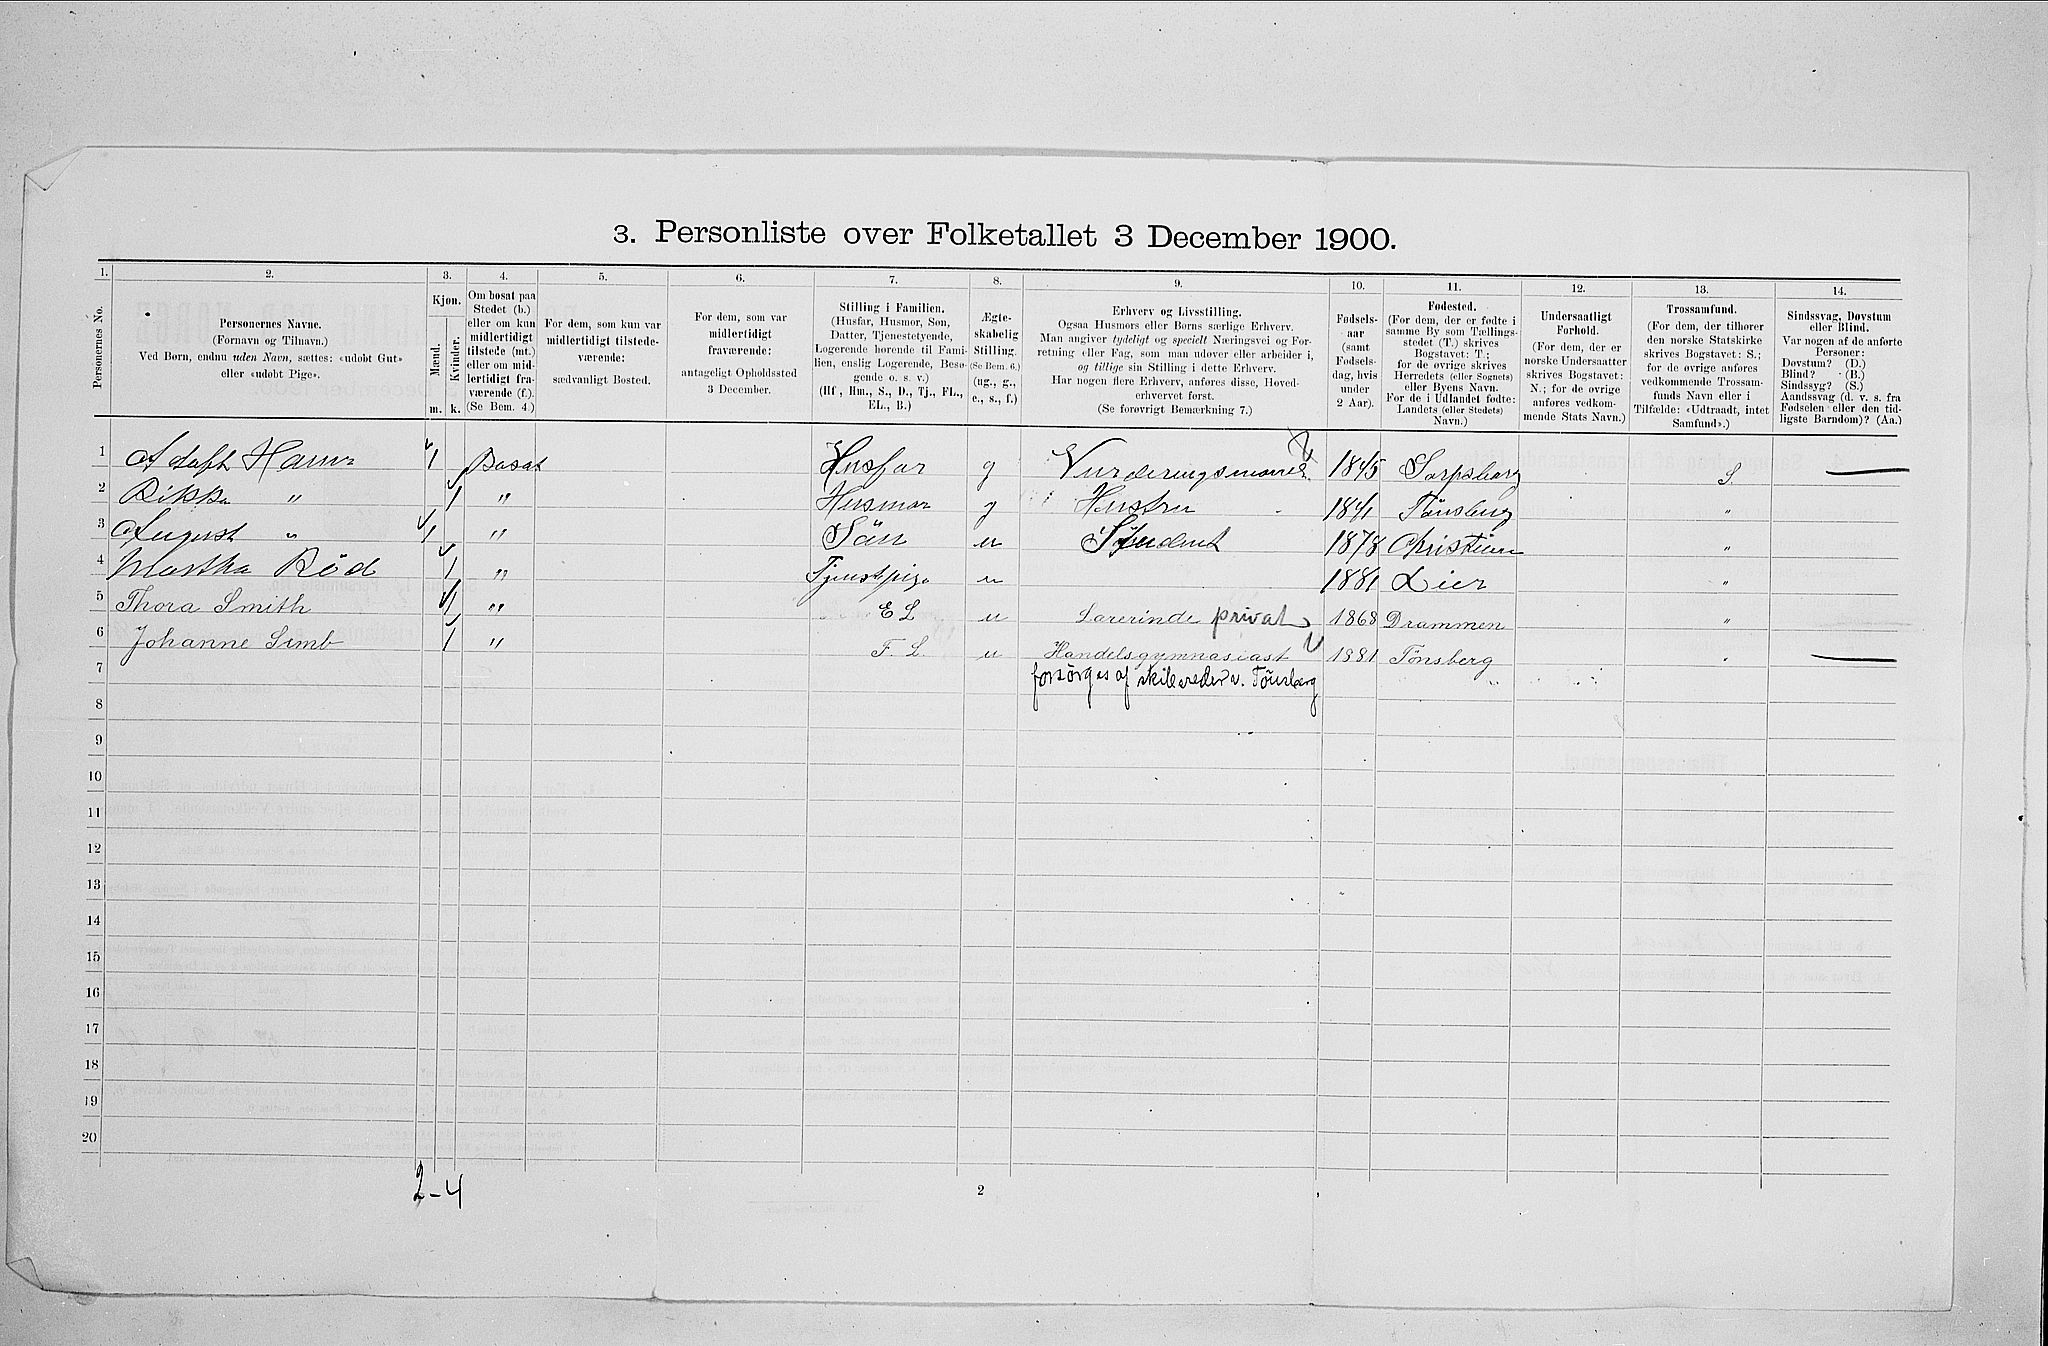 3. Personliste over Folketallet 3 December 1900.
1. 2. 3. 4. 5. 6. 7. 8. 9. 10. 11. 12. 13. 14.
Personernes No.
Personernes Navne.
(Fornavn og Tilnavn.)
Ved Børn, endnu uden Navn, sættes: «udøbt Gut»
eller «udøbt Pige».
Kjøn.
Mænd.
Kvinder.
m. k.
Om bosat paa
Stedet (b.)
eller om kun
midlertidigt
tilstede (mt.)
eller om mid-
lertidigt fra-
værende (f.).
(Se Bem. 4.)
For dem, som kun var
midlertidigt tilstede-
værende:
sædvanligt Bosted.
For dem, som var
midlertidigt
fraværende:
antageligt Opholdssted
3 December.
Stilling i Familien.
(Husfar, Husmor, Søn,
Datter, Tjenestetyende,
Logerende hørende til Fami-
lien, enslig Logerende, Besø-
gende o. s. v.)
(Hf., Hm., S., D., Tj., FL.,
EL., B.)
Ægte-
skabelig
Stilling.
(Se Bem. 6.)
(ug., g.,
e., s., f.)
Erhverv og Livsstilling.
Ogsaa Husmors eller Børns særlige Erhverv.
Man angiver tydeligt og specielt Næringsvei og For-
retning eller Fag, som man udøver eller arbeider i,
og tillige sin Stilling i dette Erhverv.
Har nogen flere Erhverv, anføres disse, Hoved-
erhvervet først.
(Se forøvrigt Bemærkning 7.)
Fødsels-
aar
(samt
Fødsels-
dag, hvis
under
2 Aar).
Fødested.
(For dem, der er fødte i
samme By som Tællings-
stedet (T.) skrives
Bogstavet: T.;
for de øvrige skrives
Herredets (eller Sognets)
eller Byens Navn.
For de i Udlandet fødte:
Landets (eller Stedets)
Navn.)
Undersaatligt
Forhold.
(For dem, der er
norske Undersaatter
skrives Bogstavet:
N.; for de øvrige
anføres vedkom-
mende Stats Navn.)
Trossamfund.
(For dem, der tilhører
den norske Statskirke
skrives Bogstavet: S.;
for de øvrige anføres
vedkommende Trossam-
funds Navn eller i
Tilfælde: «Udtraadt, intet
Samfund».)
Sindssvag, Døvstum
eller Blind.
Var nogen af de anførte
Personer:
Døvstum? (D.)
Blind? (B.)
Sindssyg? (S.)
Aandssvag (d. v. s. fra
Fødselen eller den tid-
ligste Barndom)? (Aa.)
1 Adolf 1 Bosat Husfar g 1845 Sarpsborg S.
2 Rikka " 1 " Husmor g Hustru 1841 Tönsberg "
3 August " 1 " Sön u Student 1878 "
4 Martha Röd 1 " u 1881 Lier "
5 Thora Smith 1 " E L u Lærerinde privat 1868 Drammen "
6 Johanne 1 " F. L. u Handelsgymnasiast 1881 Tønsberg "
7 forsörges af Tönsberg
8
9
10
11
12
13
14
15
16
17
18
19
20
2-4
2